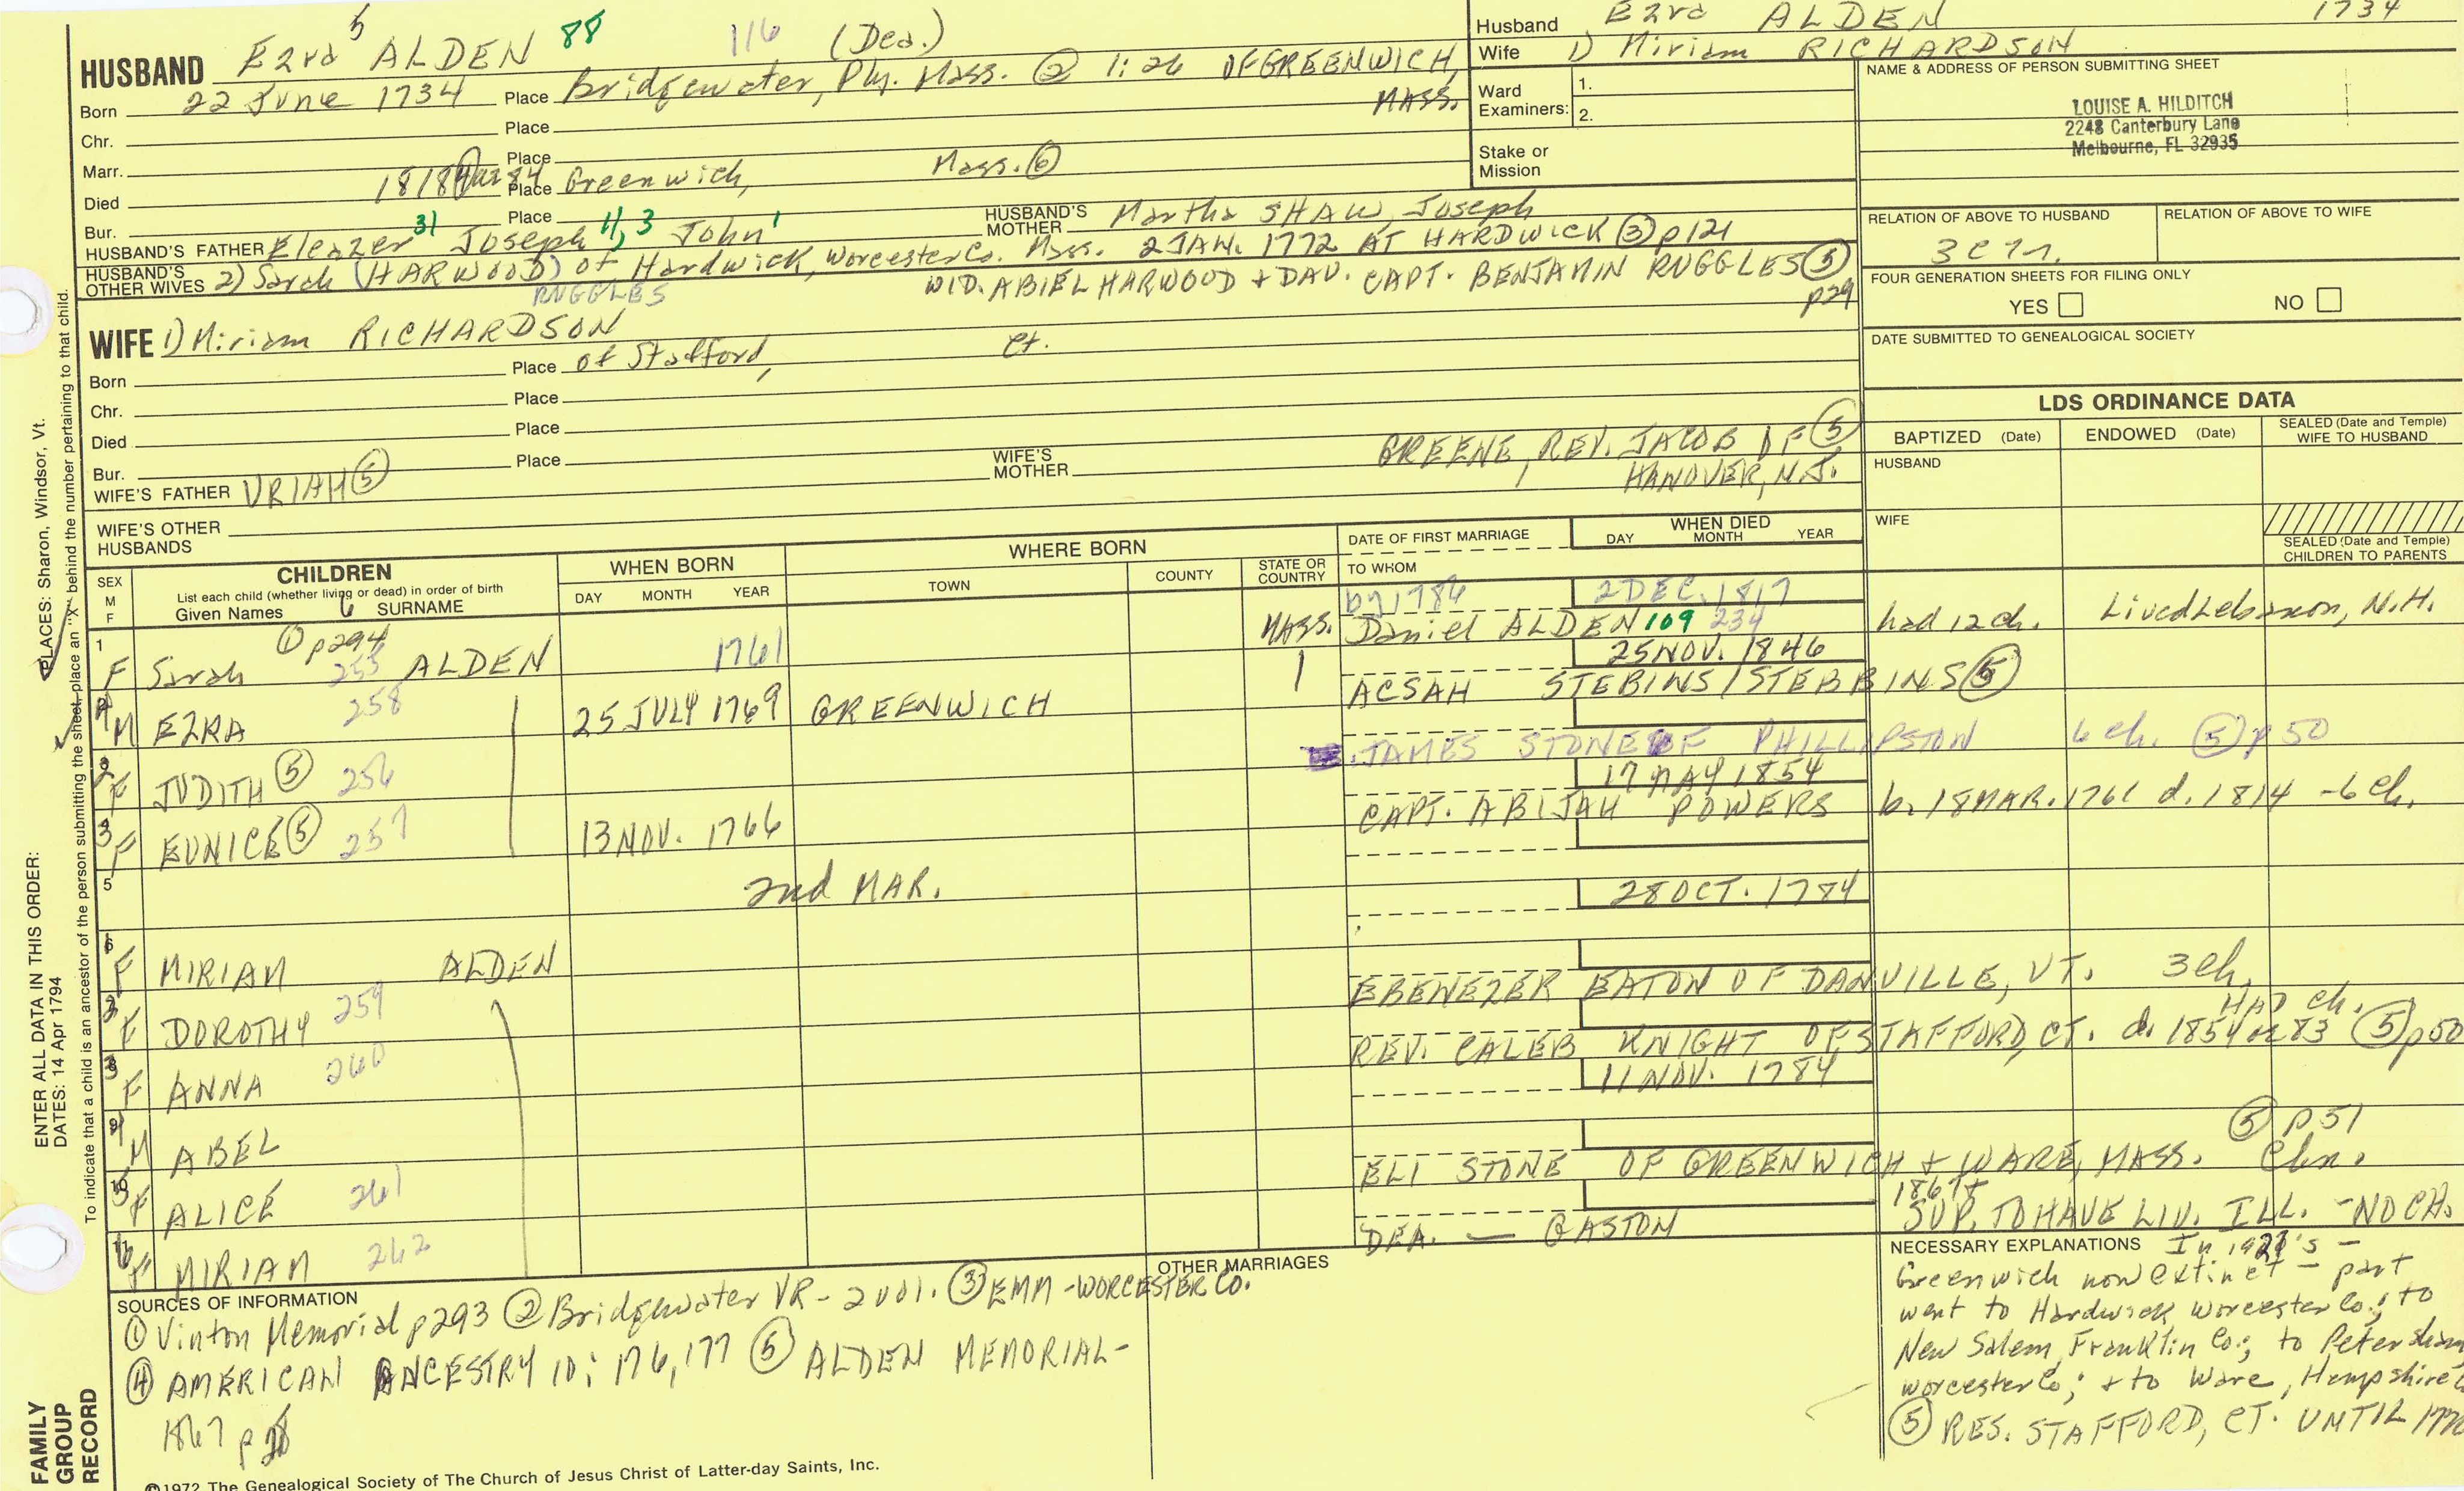 HUSBAND Ezra 5 ALDEN 88 116 (Dea.)
Born 22 June 1734 Place Bridgewater, Ply. Mass. ② 1:26 OF GREENWICH, MASS.
Chr. Place
Marr. Place
Died 1818 Place Greenwich, Mass. ⑥
Bur. Place
HUSBAND'S FATHER Eleazer 31 Joseph 11, 3 John 1 HUSBAND'S MOTHER Martha SHAW, Joseph
HUSBAND'S OTHER WIVES 2) Sarah (HARWOOD) of Hardwick, Worcester Co. Mass. 2 JAN. 1772 AT HARDWICK ③ p 121
RUGGLES WID. ABIEL HARWOOD + DAU. CAPT. BENJAMIN RUGGLES ⑤ p29
WIFE 1) Miriam RICHARDSON
Born Place of Stafford, Ct.
Chr. Place
Died Place
Bur. Place
WIFE'S FATHER URIAH ⑤ WIFE'S MOTHER GREENE, REV. JACOB OF ⑤ HANOVER, N.J.
WIFE'S OTHER HUSBANDS
Husband Ezra ALDEN 1734
Wife 1) Miriam RICHARDSON
Ward Examiners: 1.
2.
Stake or Mission
NAME & ADDRESS OF PERSON SUBMITTING SHEET
LOUISE A. HILDITCH
2248 Canterbury Lane
Melbourne, FL 32935
RELATION OF ABOVE TO HUSBAND RELATION OF ABOVE TO WIFE
FOUR GENERATION SHEETS FOR FILING ONLY
YES NO
DATE SUBMITTED TO GENEALOGICAL SOCIETY
LDS ORDINANCE DATA
BAPTIZED (Date) ENDOWED (Date) SEALED (Date and Temple) WIFE TO HUSBAND
HUSBAND
WIFE
SEALED (Date and Temple) CHILDREN TO PARENTS
SEX M F
CHILDREN
List each child (whether living or dead) in order of birth
Given Names 6 SURNAME
WHEN BORN
DAY MONTH YEAR
WHERE BORN
TOWN COUNTY STATE OR COUNTRY
DATE OF FIRST MARRIAGE
TO WHOM
WHEN DIED
DAY MONTH YEAR
1 F Sarah ① p294 255 ALDEN 1761 MASS. by 1786 2 DEC. 1817
Daniel ALDEN 109 234 had 12 ch. Lived Lebanon, N.H.
M EZRA 258 25 JULY 1769 GREENWICH 25 NOV. 1846
ACSAH STEBINS/STEBBINS ⑤
F JUDITH ⑤ 256
JAMES STONE OF PHILLIPSTON 6 ch. ⑤ p 50
3 F EUNICE ⑤ 257 13 NOV. 1766 17 MAY 1854
CAPT. ABIJAH POWERS b. 18 MAR. 1761 d. 1814 - 6 ch.
5 2nd MAR.
6 F MIRIAM ALDEN 28 OCT. 1784
F DOROTHY 259
EBENEZER EATON OF DANVILLE, VT. 3 ch.
F ANNA 260
REV. CALEB KNIGHT OF STAFFORD, CT. d. 1854 ae 83 HAD ch. ⑤ p50
M ABEL 11 NOV. 1784
F ALICE 261
ELI STONE OF GREENWICH + WARE, MASS. ⑤ p 51
F MIRIAM 262
DEA. — GASTON SUP. TO HAVE LIV. ILL. - NO CH.
SOURCES OF INFORMATION
① Vinton Memorial p293 ② Bridgewater VR - 2 vol. ③ EMM - WORCESTER CO.
④ AMERICAN ANCESTRY 10: 176, 177 ⑤ ALDEN MEMORIAL -
1867 p
OTHER MARRIAGES
NECESSARY EXPLANATIONS In 's -
Greenwich now extinct - part
went to Hardwick, Worcester Co.; to
New Salem, Franklin Co.; to Petersham
Worcester Co; + to Ware, Hampshire
⑤ RES. STAFFORD, CT. UNTIL
©1972 The Genealogical Society of The Church of Jesus Christ of Latter-day Saints, Inc.
FAMILY GROUP RECORD
ENTER ALL DATA IN THIS ORDER:
DATES: 14 Apr 1794
PLACES: Sharon, Windsor, Vt.
To indicate that a child is an ancestor of the person submitting the sheet, place an "X" behind the number pertaining to that child.